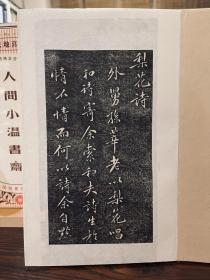 梨花詩
外男孫莘老以梨花唱
和詩寄余索和夫詩生於
情不情而何以詩余自點
人間小温書齋